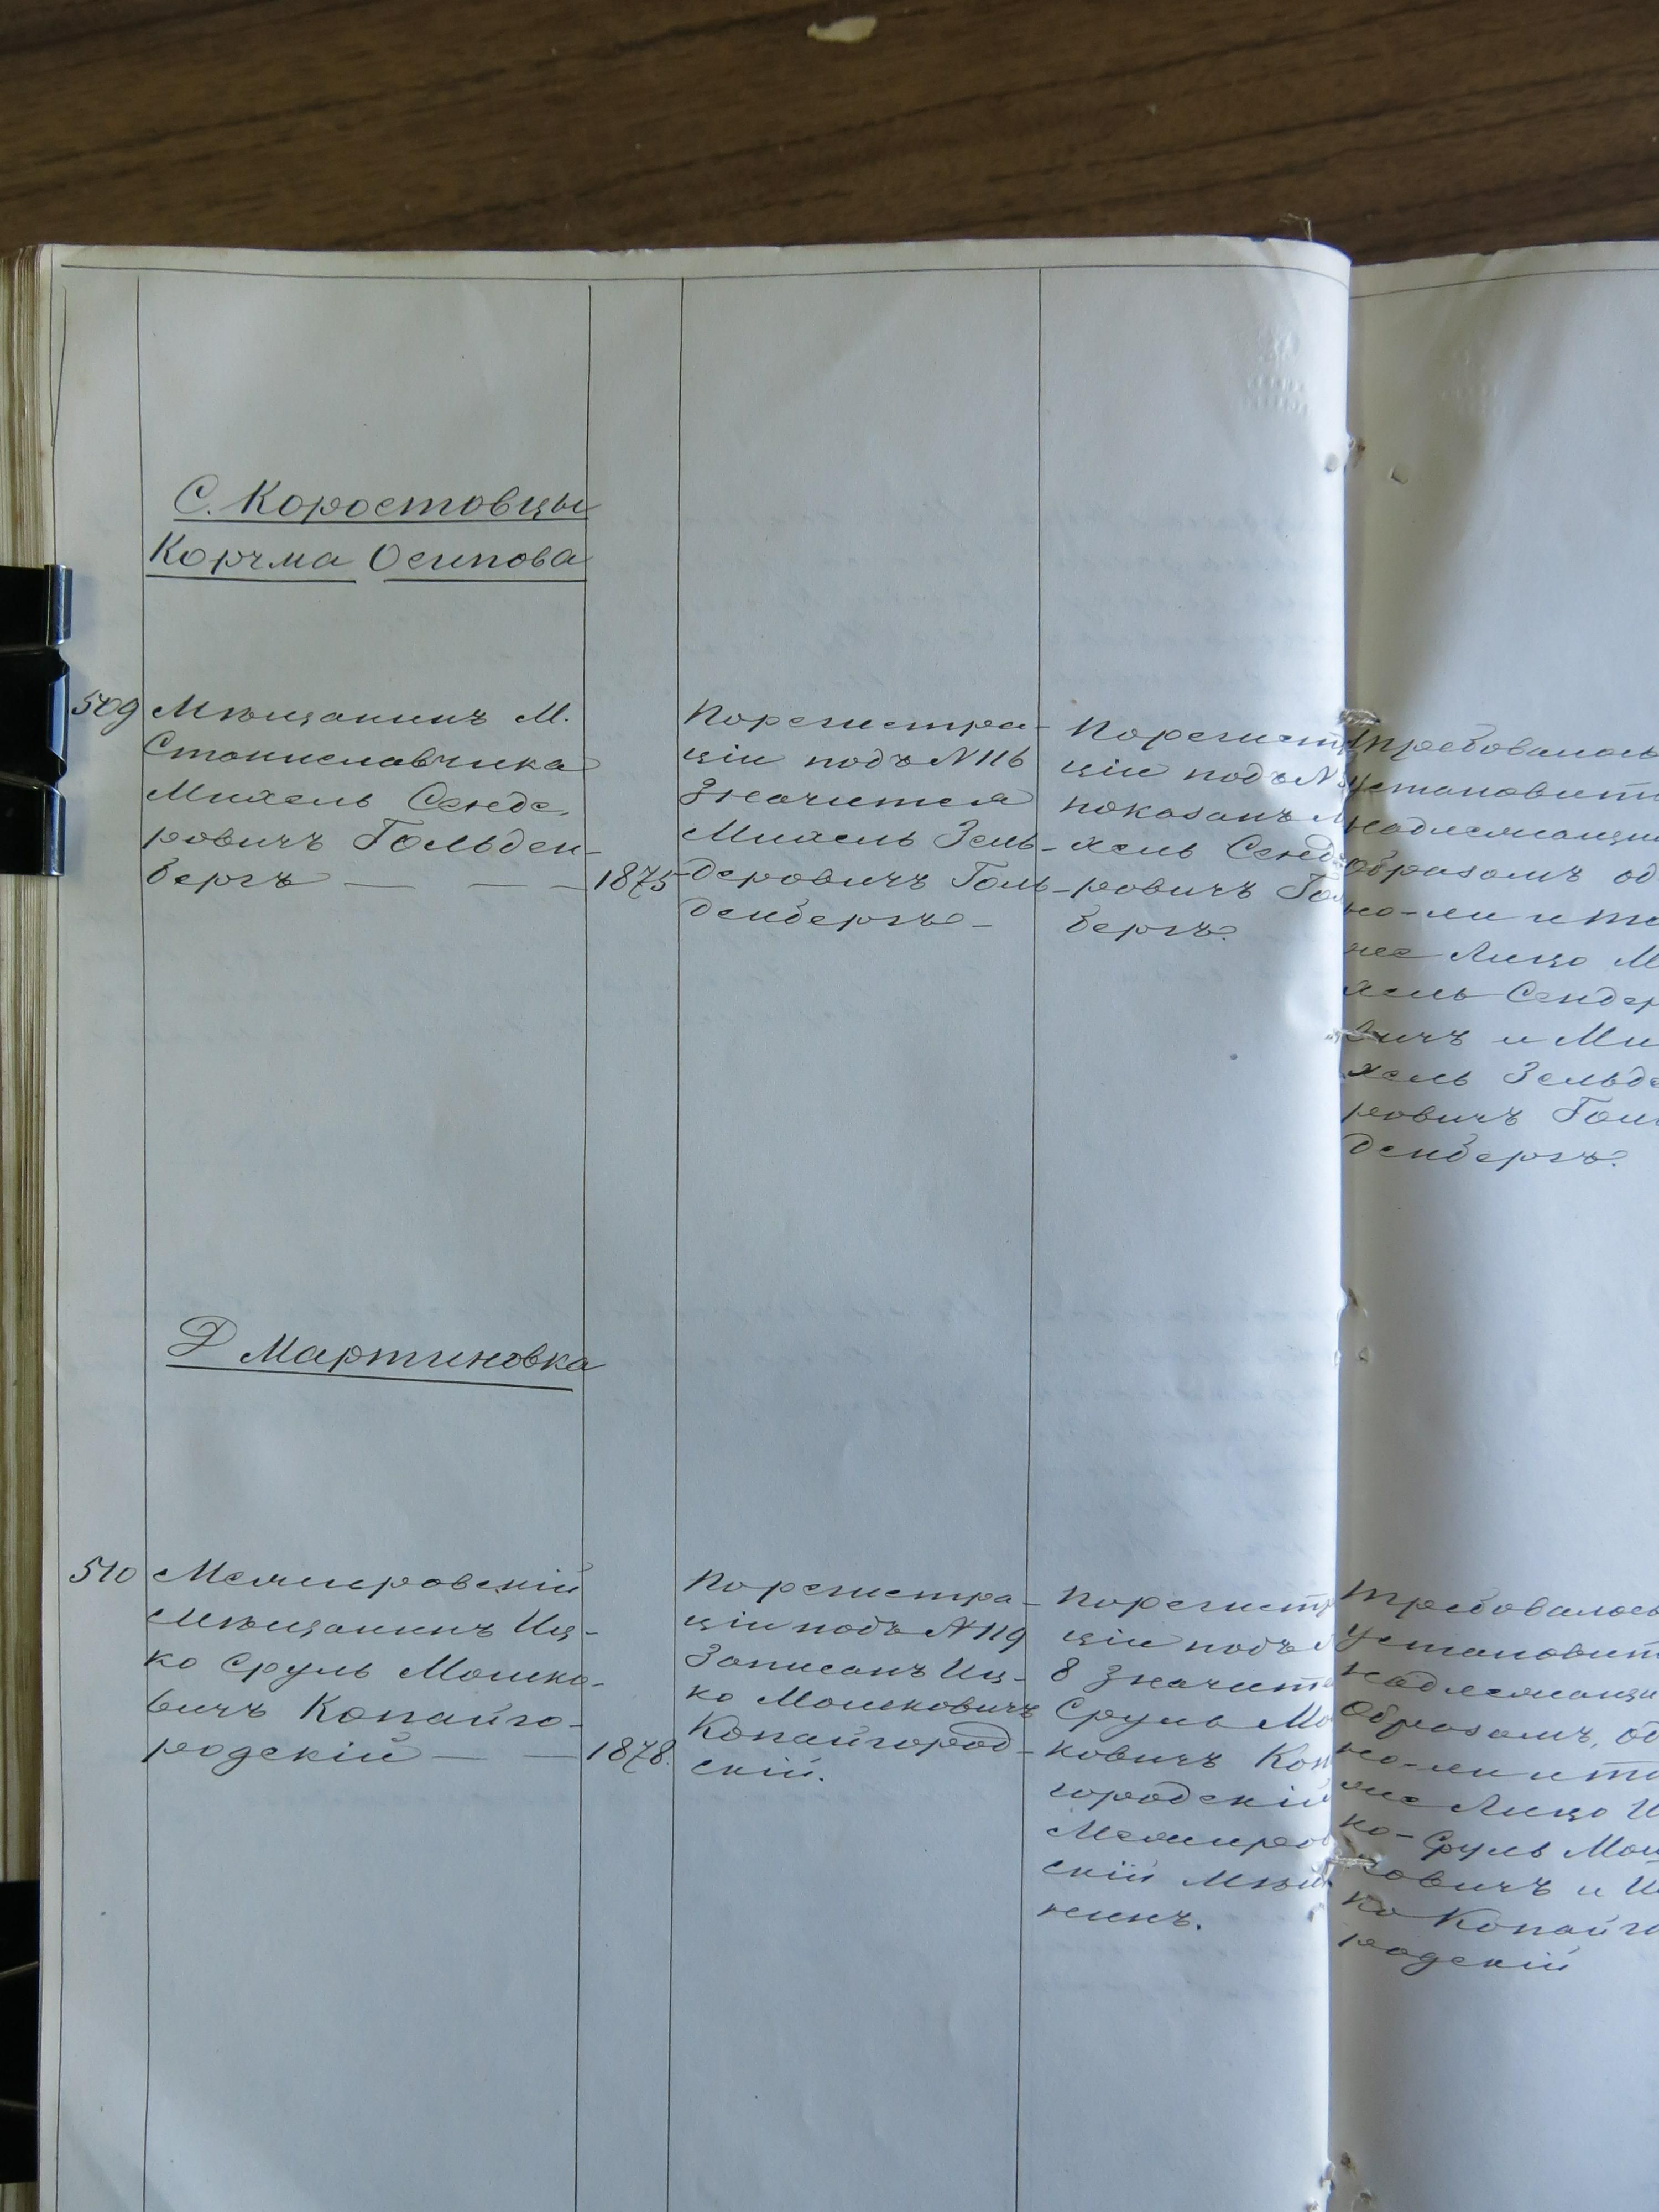 С. Коростовцы
Корчма Осипова
509
Мѣщанинъ М.
Станиславчика
Михель Сенде-
ровичъ Гольден-
бергъ — — — 1875
По регистра-
ціи подъ N 116
Значится
Михель Зель-
деровичъ Голь-
денбергъ —
По регист
ціи подъ N
показанъ
хель Сенд
ровичъ Го
бергъ.
требовалось
установит
надлежащи
образомъ од
но-ли и то
же Лицо М
хель Сендер
вичъ и Ми
хель Зельде
ровичъ Гол
денбергъ.
Д Мартиновка
510
Межировскій
мѣщанинъ Иц-
ко Сруль Мошко-
вичъ Копайго-
родскій — — 1878.
По регистра-
ціи подъ N 119
Записанъ Иц-
ко Мошковичъ
Копайгород-
скій.
По регистр
ціи подъ
8 Значит
Сруль Мо
ковичъ Коп
городскій
Межиров
скій Мѣщ
нинъ.
требовалось
установит
надлежащи
образомъ, од
но-ли и то
же Лицо И
ко-Сруль Мош
ковичъ и И
ко Копайго
родскій